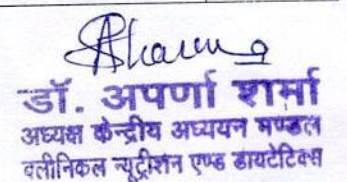 Sharma
डॉ. अपर्णा शर्मा
अध्यक्ष केन्द्रीय अध्ययन मण्डल
क्लीनिकल न्यूट्रीशन एण्ड डायटेटिक्स